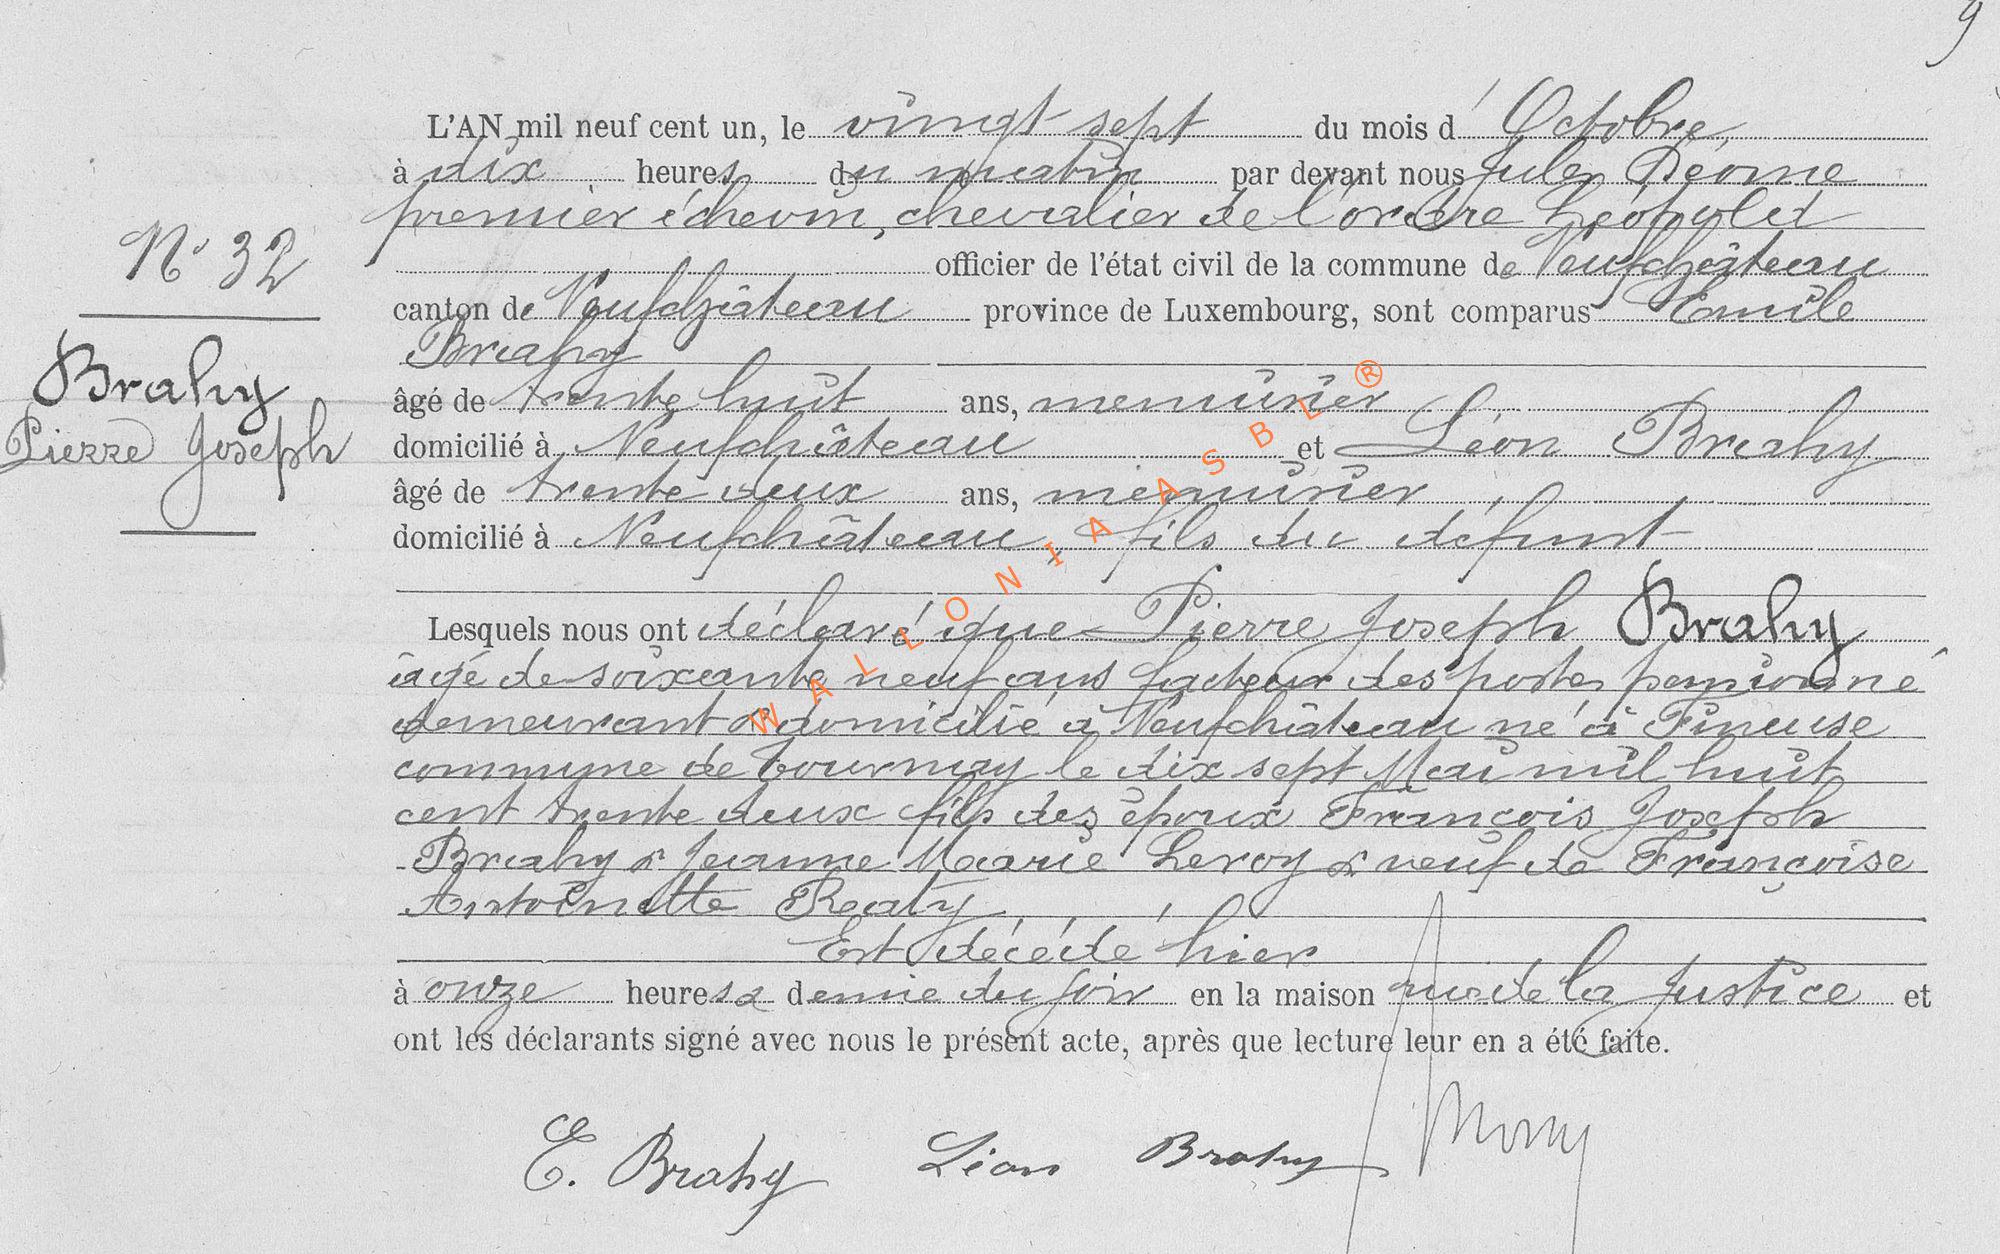 9
L'AN mil neuf cent un, le vingt sept du mois d'Octobre,
à dix heures du matin par devant nous Jules
premier échevin, chevalier de l'ordre Léopold
officier de l'état civil de la commune de Neufchâteau
canton de Neufchâteau province de Luxembourg, sont comparus Emile
Brahy
âgé de trente huit ans, menuisier
domicilié à Neufchâteau et Léon Brahy
âgé de trente deux ans, menuisier,
domicilié à Neufchâteau, fils du défunt
Lesquels nous ont déclaré que Pierre Joseph Brahy
âgé de soixante neuf ans facteur des postes pensionné
demeurant & domicilié à Neufchâteau né à Fineuse
commune de Tournay le dix sept Mai mil huit
cent trente deux fils des époux François Joseph
Brahy & Jeanne Marie Leroy & veuf de Françoise
Antoinette Reaty
Est décédé hier
à onze heures & demie du soir en la maison rue de la Justice et
ont les déclarants signé avec nous le présent acte, après que lecture leur en a été faite.
E. Brahy Léon Brahy
No 32
Brahy
Pierre Joseph
WALLONIA ASBL ®